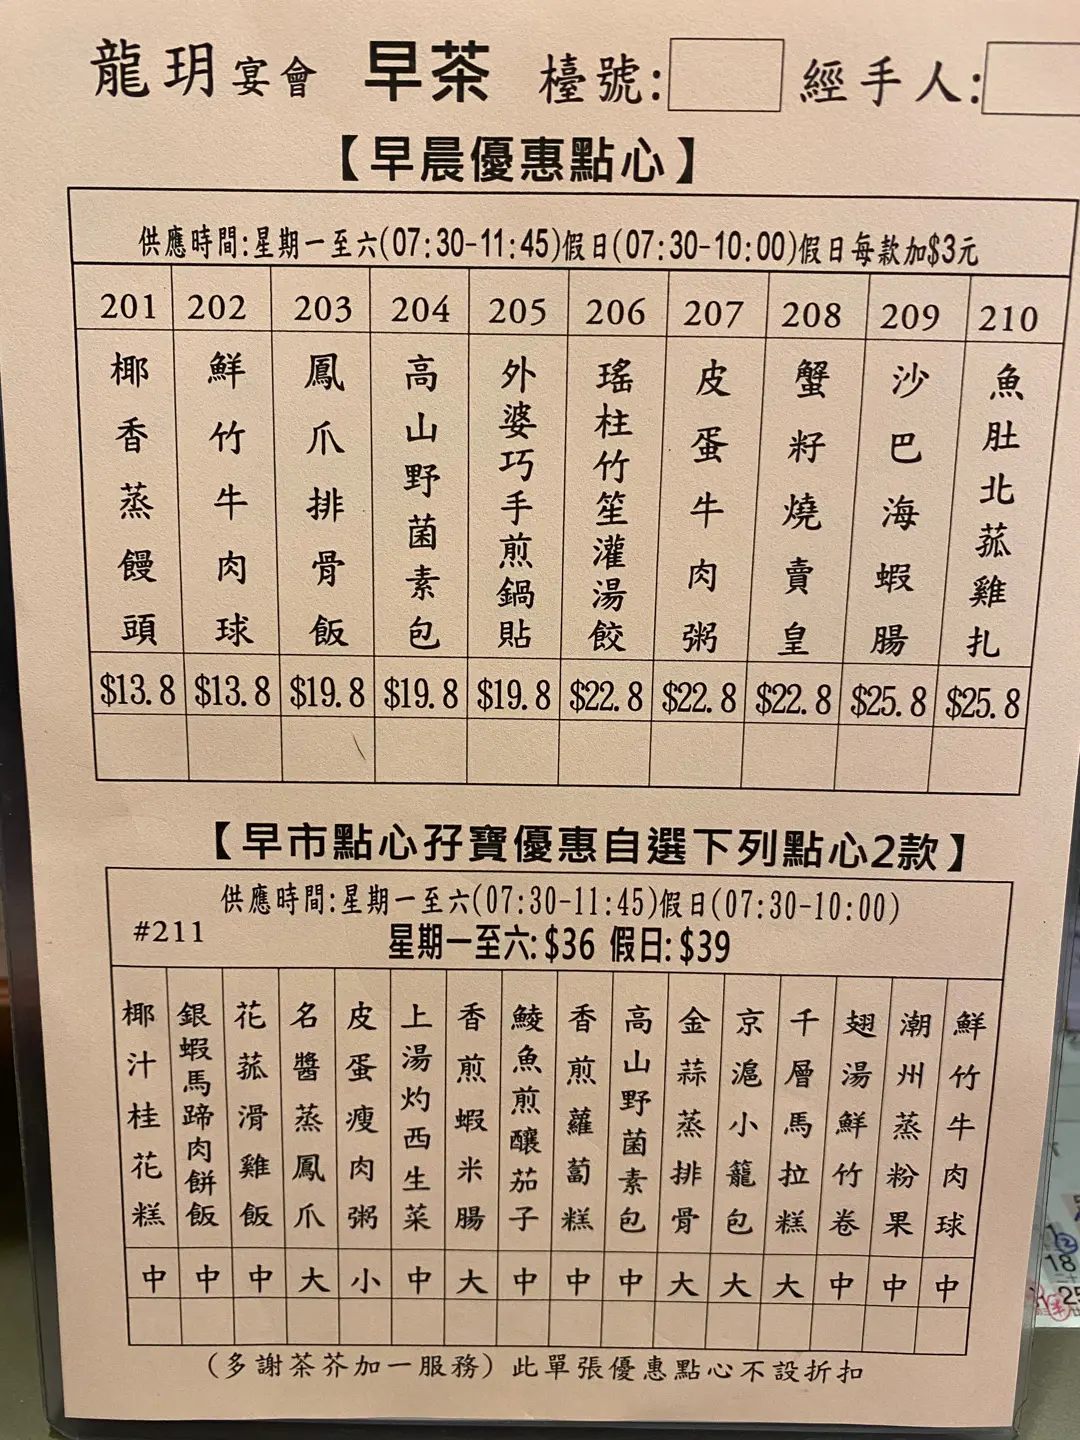 龍玥宴會 早茶 檯號: 經手人:
【早晨優惠點心】
供應時間:星期一至六(07:30-11:45)假日(07:30-10:00)假日每款加$3元
201 202 203 204 205 206 207 208 209 210
椰香蒸饅頭
鮮竹牛肉球
鳳爪排骨飯
高山野菌素包
外婆巧手煎鍋貼
瑤柱竹笙灌湯餃
皮蛋牛肉粥
蟹籽燒賣皇
沙巴海蝦腸
魚肚北菰雞扎
$13.8 $13.8 $19.8 $19.8 $19.8 $22.8 $22.8 $22.8 $25.8 $25.8
【早市點心孖寶優惠自選下列點心2款】
供應時間:星期一至六(07:30-11:45)假日(07:30-10:00)
#211 星期一至六:$36 假日:$39
椰汁桂花糕
銀蝦馬蹄肉餅飯
花菰滑雞飯
名醬蒸鳳爪
皮蛋瘦肉粥
上湯灼西生菜
香煎蝦米腸
鯪魚煎釀茄子
香煎蘿蔔糕
高山野菌素包
金蒜蒸排骨
京滬小籠包
千層馬拉糕
翅湯鮮竹卷
潮州蒸粉果
鮮竹牛肉球
中 中 中 大 小 中 大 中 中 中 大 大 大 中 中 中
(多謝茶芥加一服務) 此單張優惠點心不設折扣